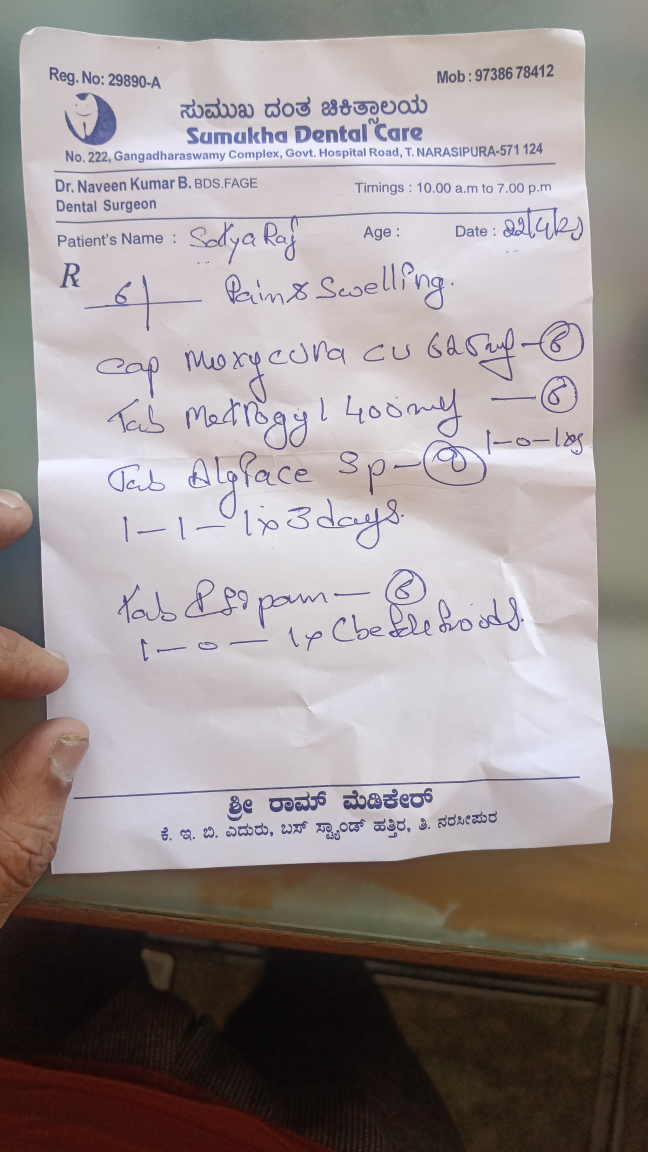 Reg. No: 29890-A
Mob : 9738678412
ಸುಮುಖ ದಂತ ಚಿಕಿತ್ಸಾಲಯ
Sumukha Dental Care
No. 222, Gangadharaswamy Complex, Govt. Hospital Road, T. NARASIPURA-571 124
Dr. Naveen Kumar B. BDS.FAGE
Timings : 10.00 a.m to 7.00 p.m
Dental Surgeon
Patient's Name : Satya Raj Age : Date : 22/4/
R
6 Pain & Swelling.
Cap CV 625mg — 6
Tab Metrogyl 400mg — 6
1-0-1
Tab SP — 9
1-1-1 x 3 days.
Tab — 6
1-0-1 x
ಶ್ರೀ ರಾಮ್ ಮೆಡಿಕೇರ್
ಕೆ. ಇ. ಬಿ. ಎದುರು, ಬಸ್ ಸ್ಟ್ಯಾಂಡ್ ಹತ್ತಿರ, ತಿ. ನರಸೀಪುರ